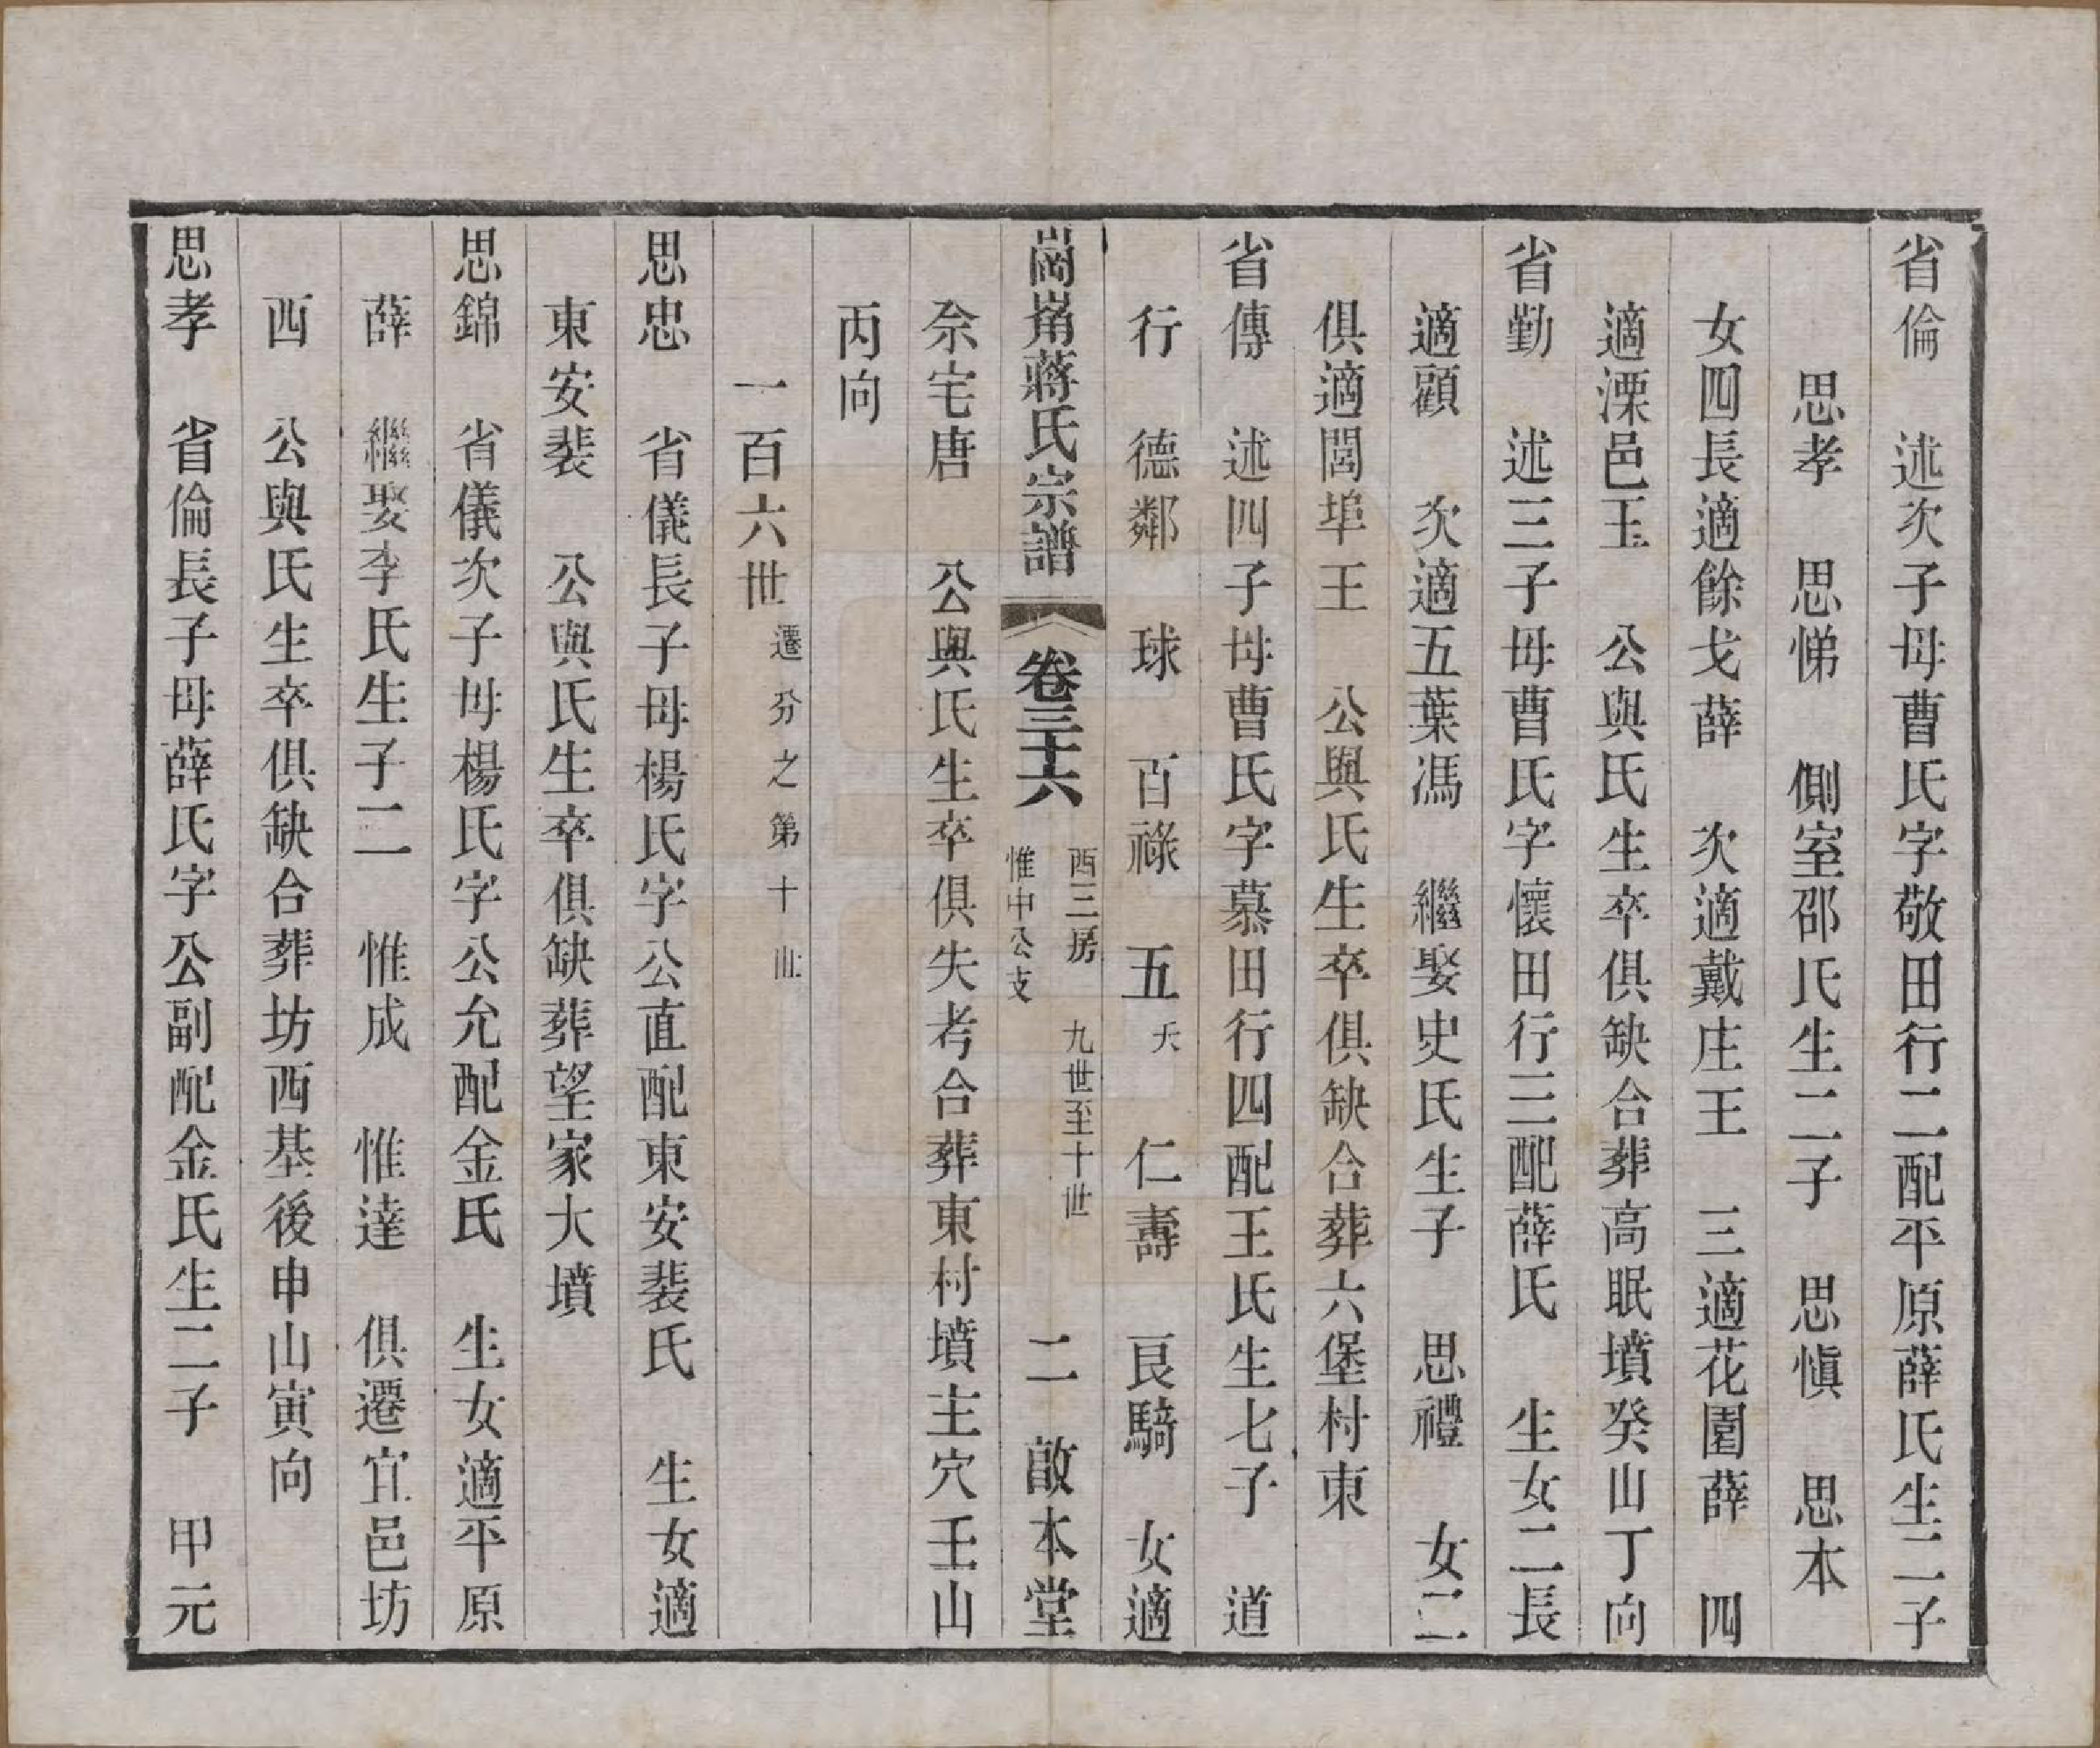 省倫　述次子母曹氏字敬田行二配平原薛氏生二子
思孝　思悌　側室邵氏生二子　思愼　思本
女四長適餘戈薛　次適戴庄王　三適花園薛　四
適溧邑玉　公與氏生卒俱缺合葬高眠墳癸山丁向
省勤　述三子母曹氏字懷田行三配薛氏　生女二長
適顧　次適五葉馮　繼娶史氏生子　思禮　女二
俱適閭埠王　公與氏生卒俱缺合葬六堡村東
省傳　述四子母曹氏字慕田行四配王氏生七子　道
行　德鄰　球　百祿　五夭　仁壽　艮騎　女適
崗崗蔣氏宗譜　卷三十六　西三房　惟中公支　九世至十世　二　啟本堂
佘宅唐　公與氏生卒俱失考合葬東村墳主穴壬山
丙向
一百六世　遷分之第十世
思忠　省儀長子母楊氏字公直配東安裴氏　生女適
東安裴　公與氏生卒俱缺葬望家大墳
思錦　省儀次子母楊氏字公允配金氏　生女適平原
薛　繼娶李氏生子二　惟成　惟達　俱遷宜邑坊
西　公與氏生卒俱缺合葬坊西基後申山寅向
思孝　省倫長子母薛氏字公副配金氏生二子　甲元